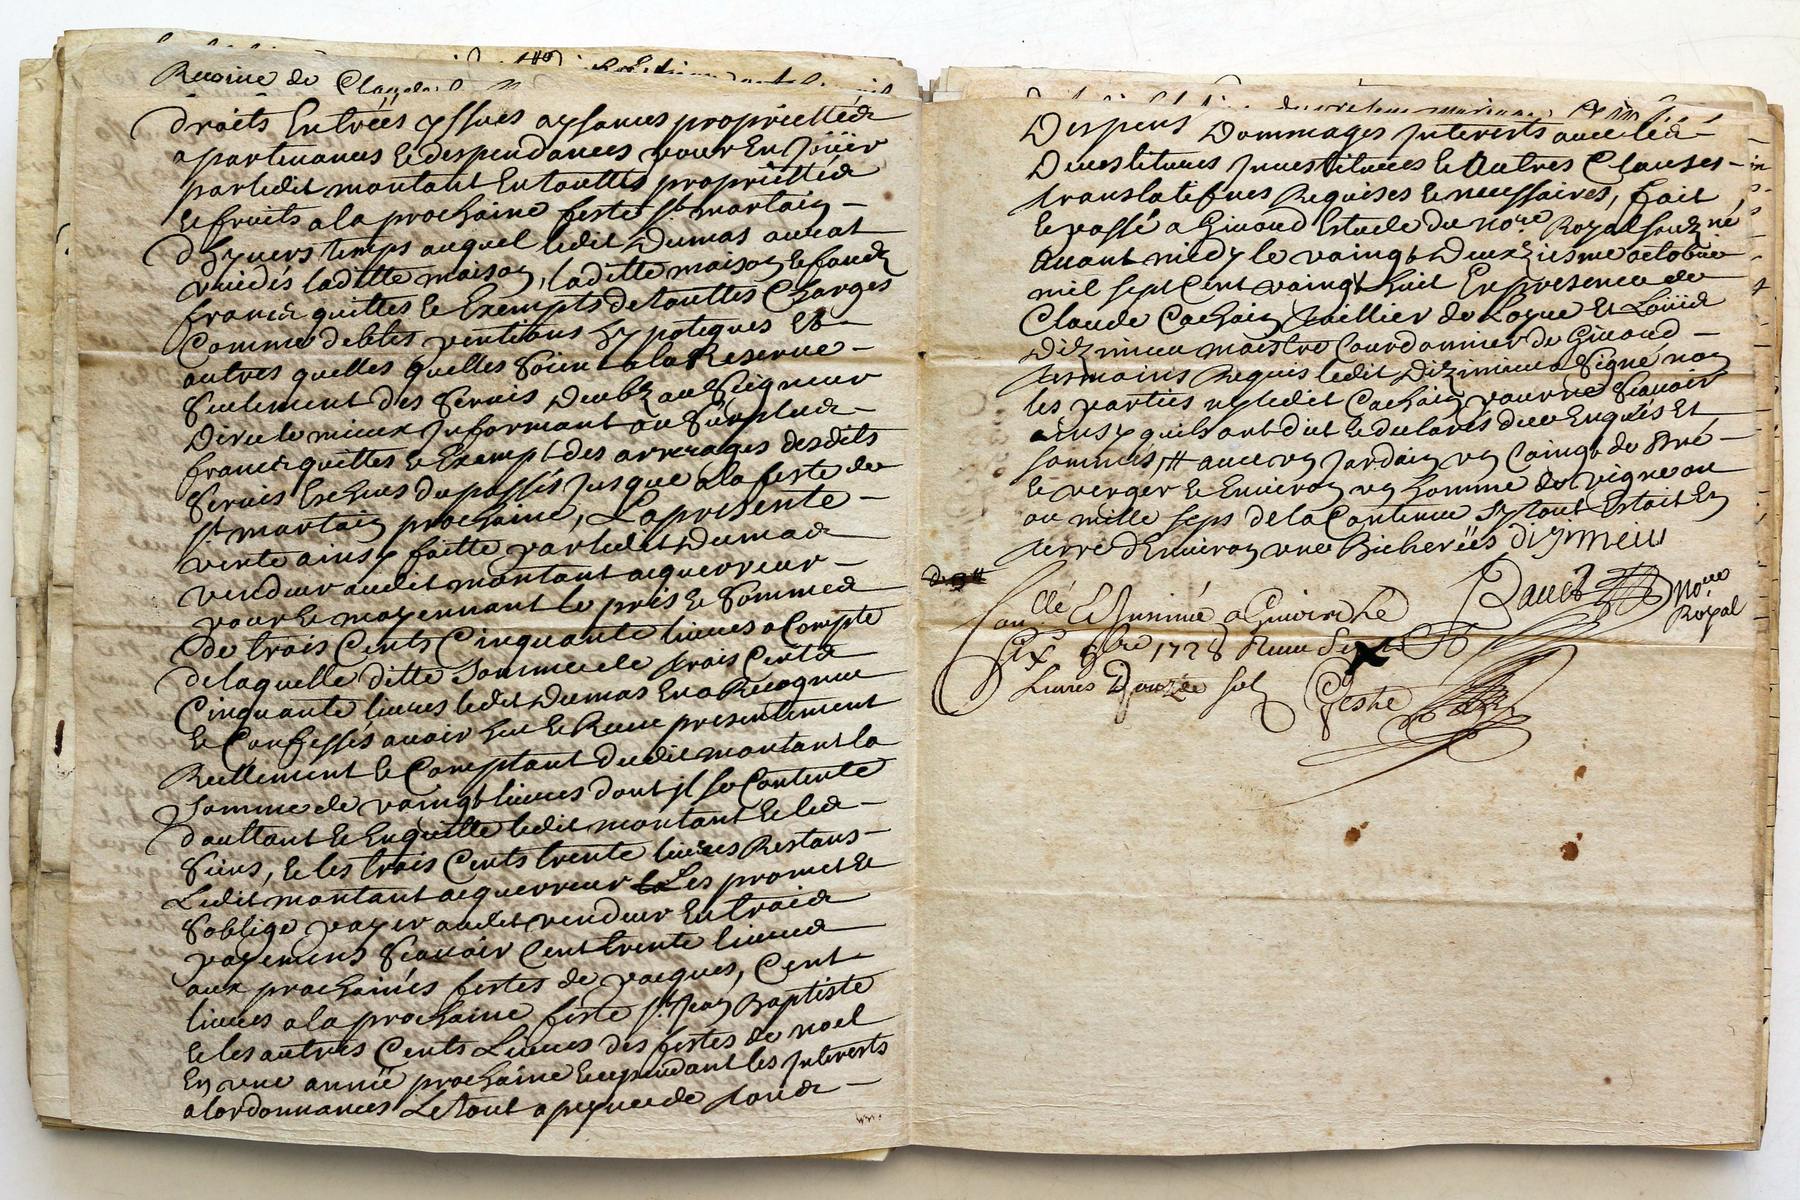 Racine de Claude
droits Entrées yssues aysances proprietted
apartenances & despendances pour En Jöüir
par ledit montant En touttes propriétted
& fruits a la prochaine feste st. martain -
d'hyvers temps auquel ledit Dumas aurat
vuidés laditte maison, laditte maison & fonds
francs quittes & Exempts de touttes Charges
Comme debtes ventions hypoteques Et
autres quelles quelles soient a la Reserve -
seulement des servis Deubz au seigneur
Direct le mieux Informant au surplus -
francs quittes & Exempt des arrerages desdits
servis Escheus du passés jusque a la feste de
st. martain prochaine, La presente -
vente ainsy faitte par ledit Dumas
vendeur audit montant acquerreur -
pour & moyennant le pris & somme
de trois Cents Cinquante livres a Compte
de laquelle ditte somme de trois Cents
Cinquante livres ledit Dumas En a Recognue
& Confesses avoir heu & Receu presentement
Reellement & Comptant dudit montant la
somme de vaingt livres dont jl se Contente
d'aultant & En quitte ledit montant & les -
siens, & les trois Cents trente livres Restans -
Ledit montant acquerreur Les promet &
s'oblige payer audit vendeur En trois
payemens scavoir Cent trente livres
aux prochaines festes de pacques, Cent -
livres a la prochaine feste st. Jean Baptiste
& les autres Cents Livres des festes de noel
En une année prochaine & cependant les Interests
a l'ordonnances Le tout a peyne de tous -
Despens Dommages Interests avec les -
Devestitures Investitures & Autres Clauses -
translatifves Requises & necessaires, fait
& passé a Givord Estude du no.re Royal souzné
Avant midy le vaingt Deuxziesme octobre
mil sept Cent vaingt huit En presence de
Claude Cachain de Loyre Et Loüis
Dizimieu maestre Courdonnier de Givord -
tesmoins Requis ledit Dizimieu a signé non
les parties ny ledit Cachain pour ne scavoir
ainsy quils ont dit & declarés de ce Enquis Et
sommés, # avec un Jardain un Coingt de Pré -
& verger & Environ un homme de vigne ou
au mille seps de la Contenue sy tout Estoit En
terre d'Environ une Bicherées dizimieu
No.re
Royal
Con.llé & Insinué a Givord le
six 9bre 1728 Receu sept
Livres Douze sols
Geste